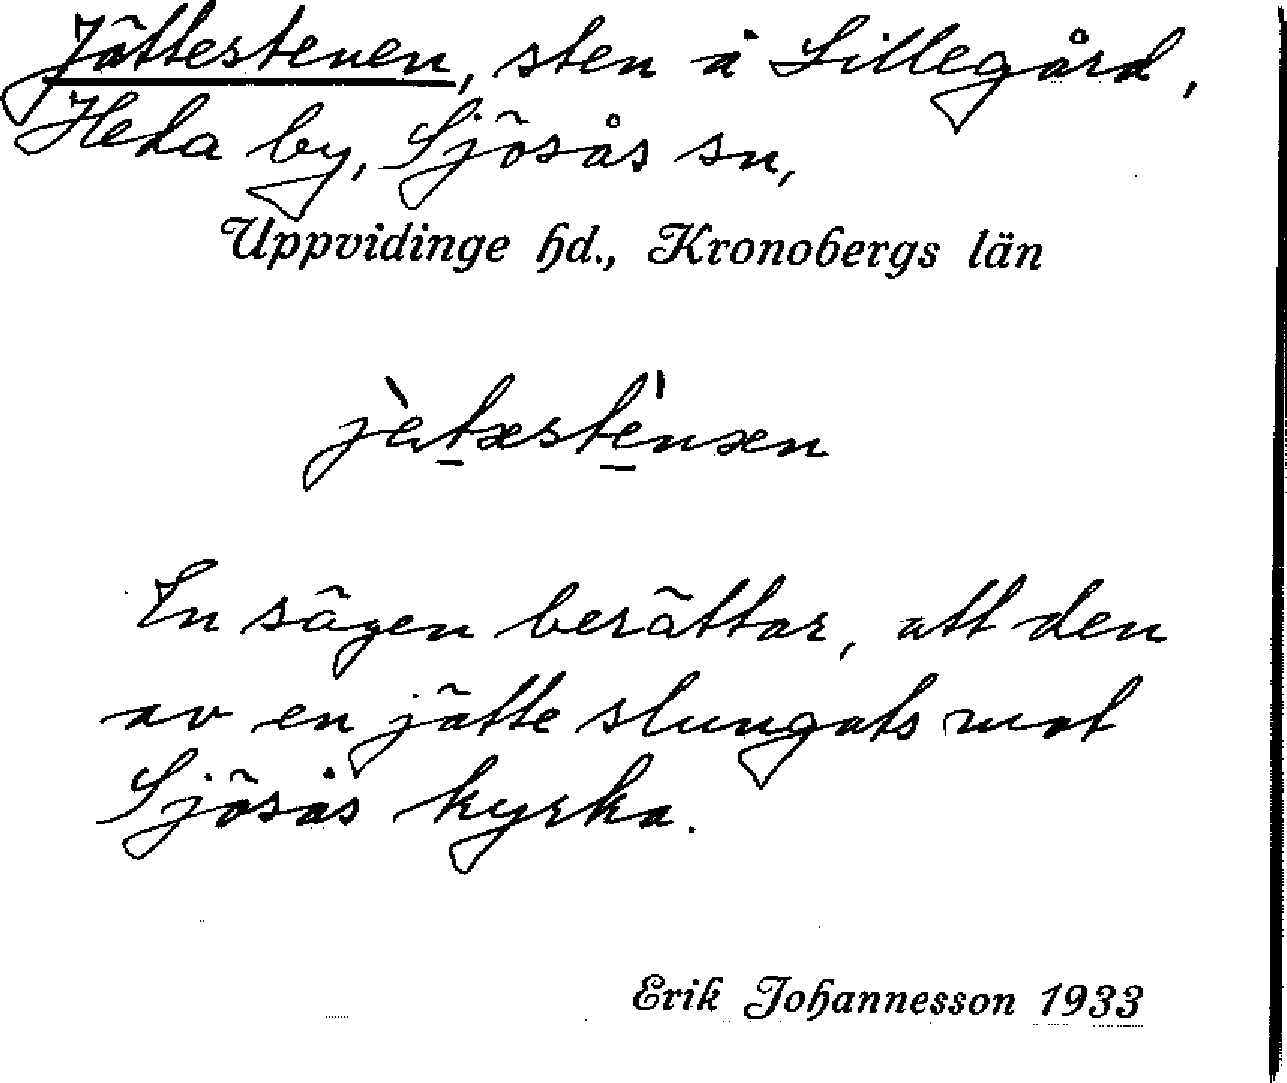 Jättestenen, sten å Lillegård,
Heda by, Sjösås sn,
Uppvidinge hd., Kronobergs län
En sägen berättar, att den
av en jätte slungats mot
Sjösås kyrka.
Erik Johannesson 1933